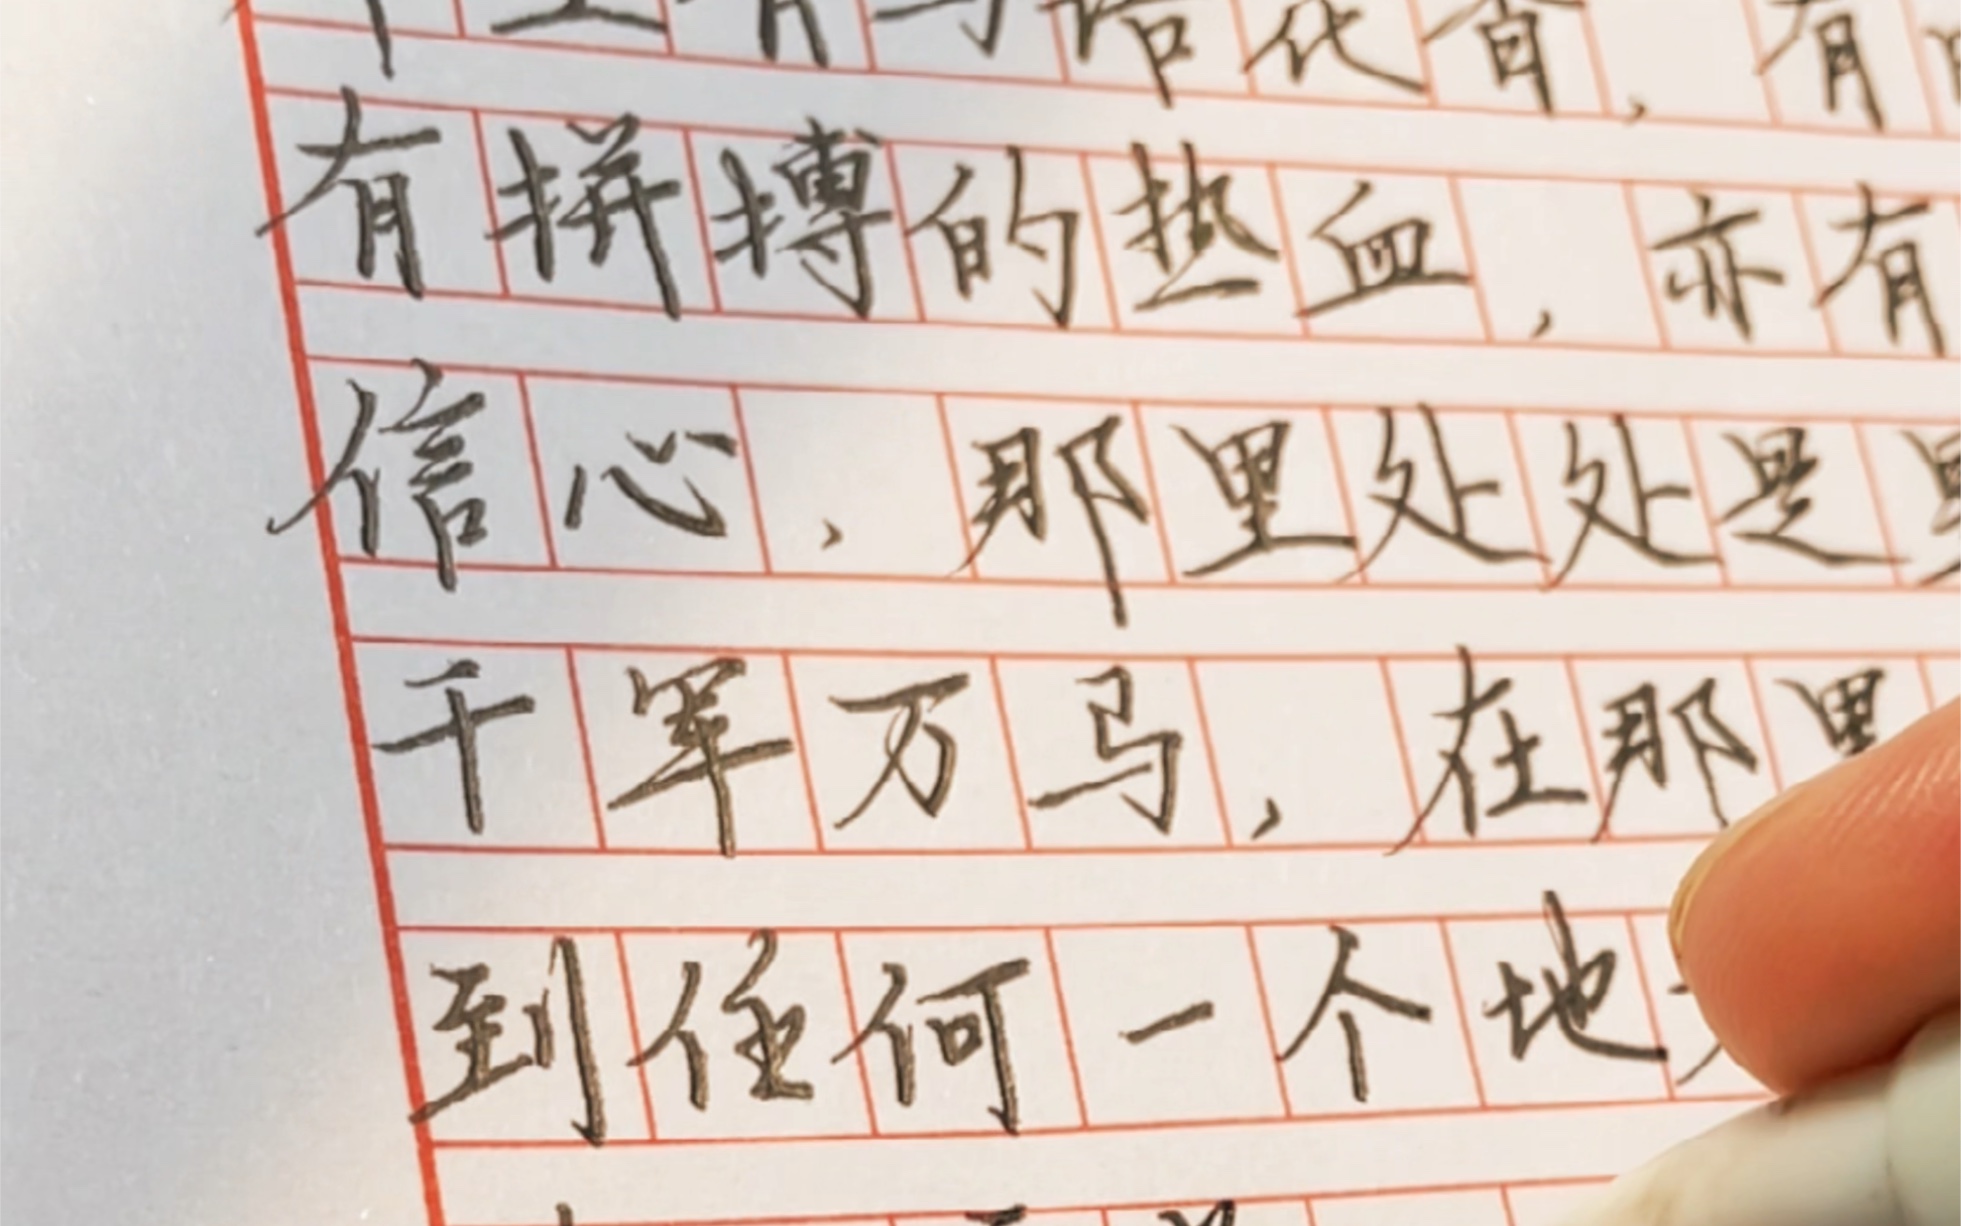 有马语花香，有
有拼搏的热血，亦有
信心，那里处处是
千军万马，在那里
到任何一个地